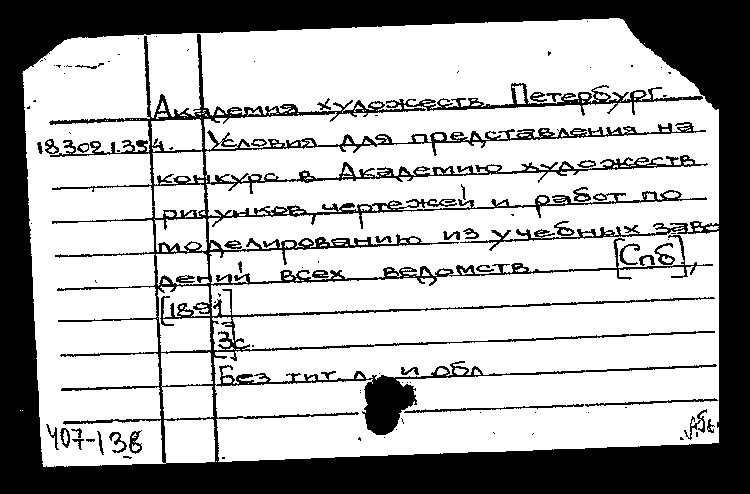 Академия художеств. Петербург.
18.302.1.354. Условия для представления на
конкурс в Академию художеств
рисунков, чертежей и работ по
моделированию из учебных заве-
дений всех ведомств. [Спб],
[1891]
3с.
Без тит. л. и обл.
407-138